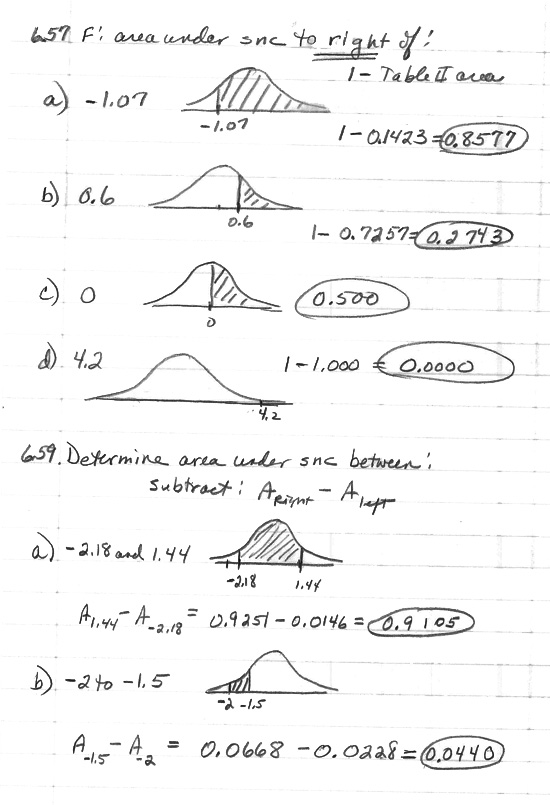 6.57 F: area under snc to right of:
1 - Table II area
a) -1.07
-1.07
1 - 0.1423 = 0.8577
b) 0.6
0.6
1 - 0.7257 = 0.2743
c) 0
0
0.500
d) 4.2
4.2
1 - 1.000 = 0.0000
6.59. Determine area under snc between:
subtract: A right - A left
a) -2.18 and 1.44
-2.18 1.44
A1.44 - A-2.18 = 0.9251 - 0.0146 = 0.9105
b) -2 to -1.5
-2 -1.5
A-1.5 - A-2 = 0.0668 - 0.0228 = 0.0440